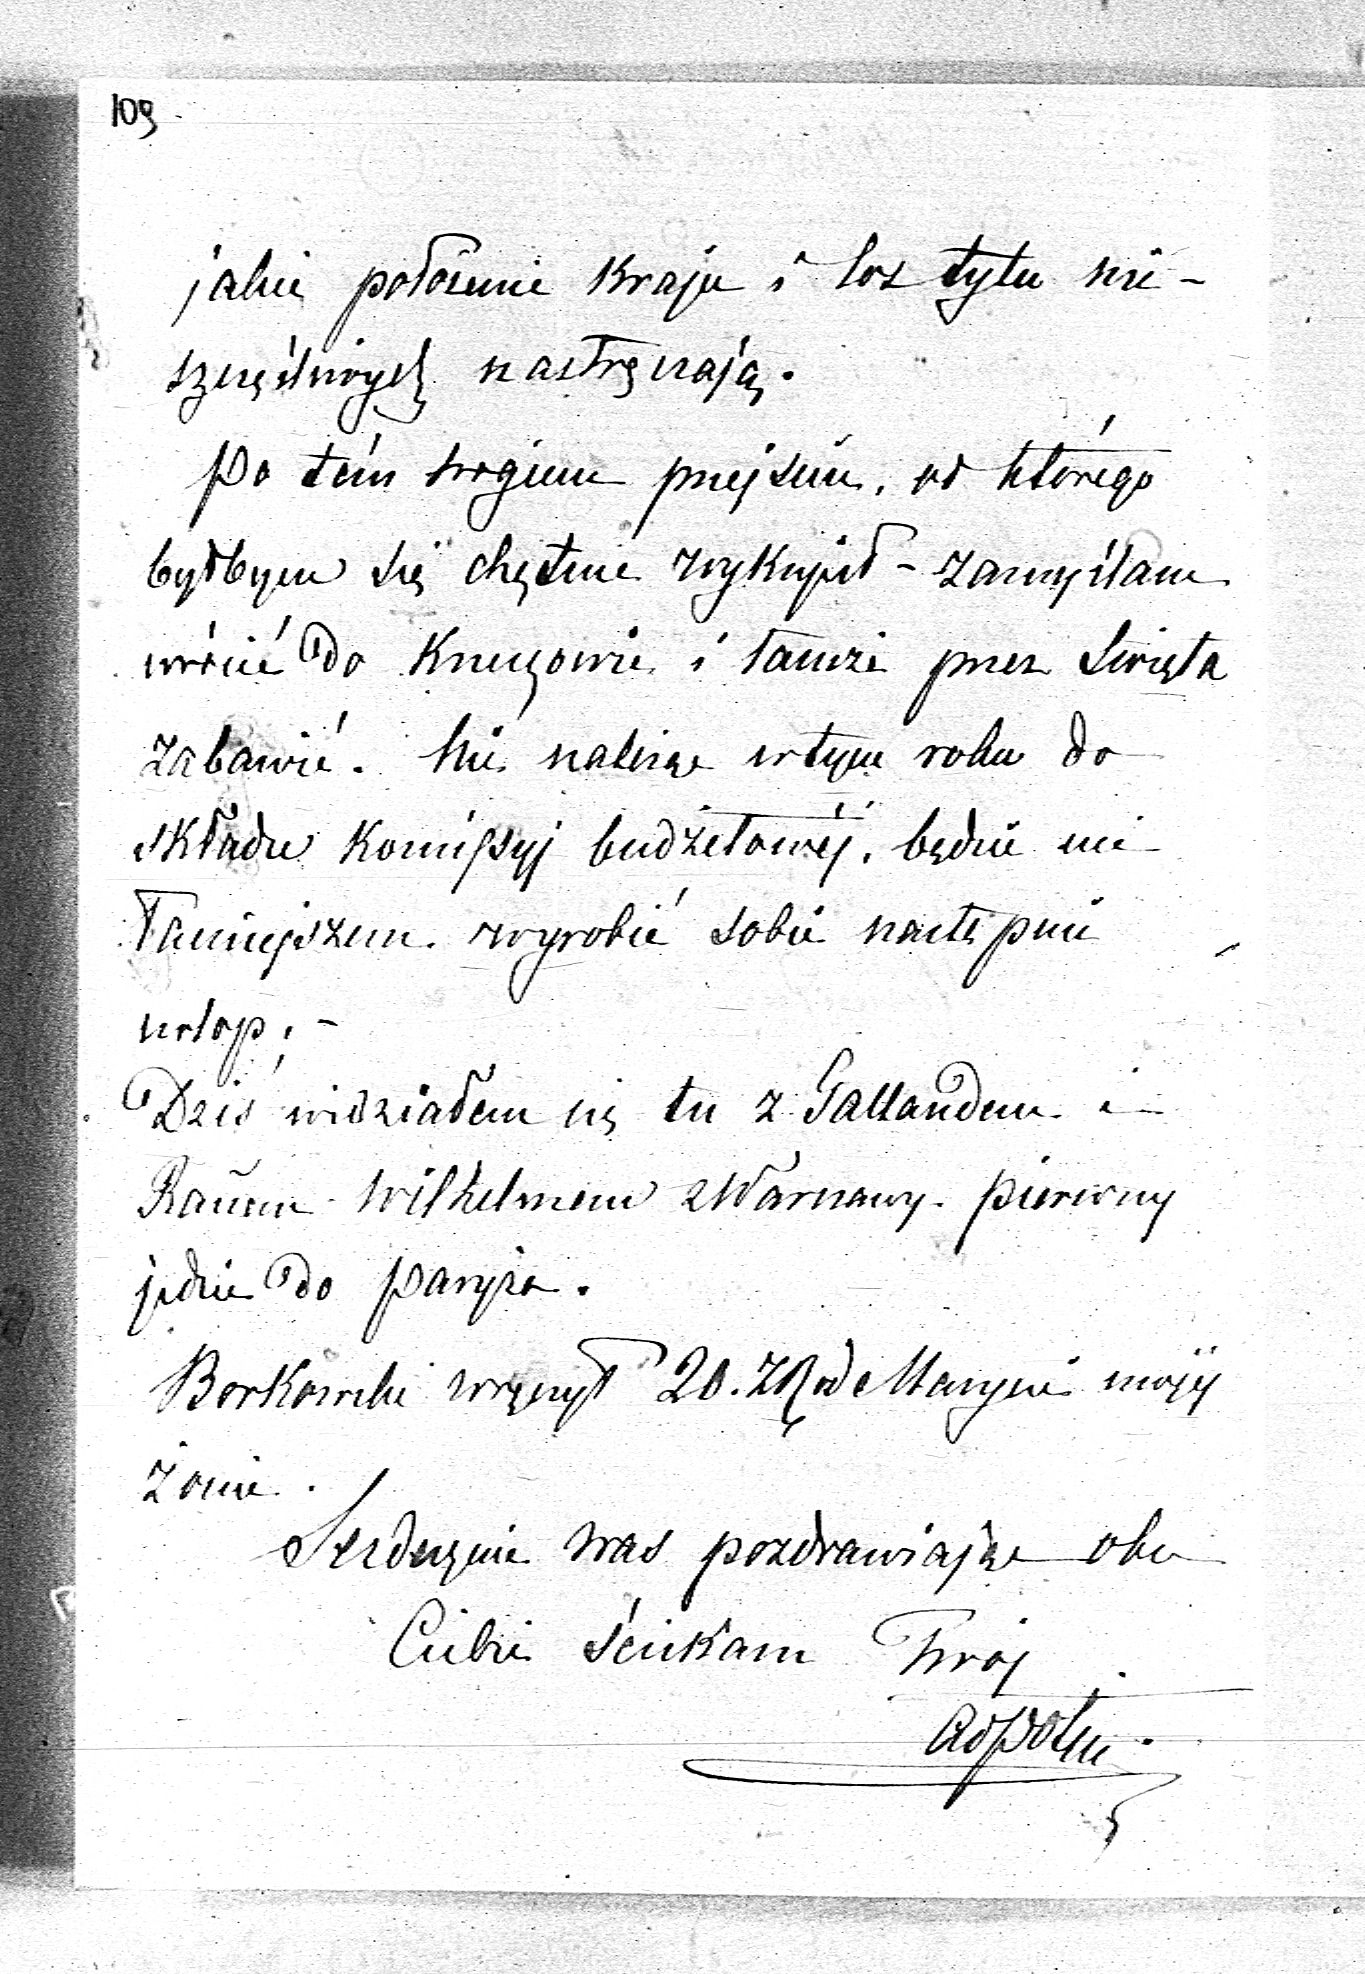 109
jakie położenie kraju i los tylu nie-
szczęśliwych nastręczają.
Po tém srogiem przejściu, od którego
byłbym się chętnie wykupił - zamyślam
wrócić do Krzeszowic i tamże przez Święta
zabawić. Nie należąc w tym roku do
składu Komissyj budżetowéj, będzie mi
łatwiejszem wyrobić sobie następnie
urlop. -
Dziś widziałem się tu z Gallandem i
Rauem Wilhelmem z Warszawy. pierwszy
jedzie do Paryża.
Borkowski wręczył 20. ZR od Maryni mojéj
żonie.
Serdecznie Was pozdrawiając obu
Ciebie ściskam Twój
AdPotu